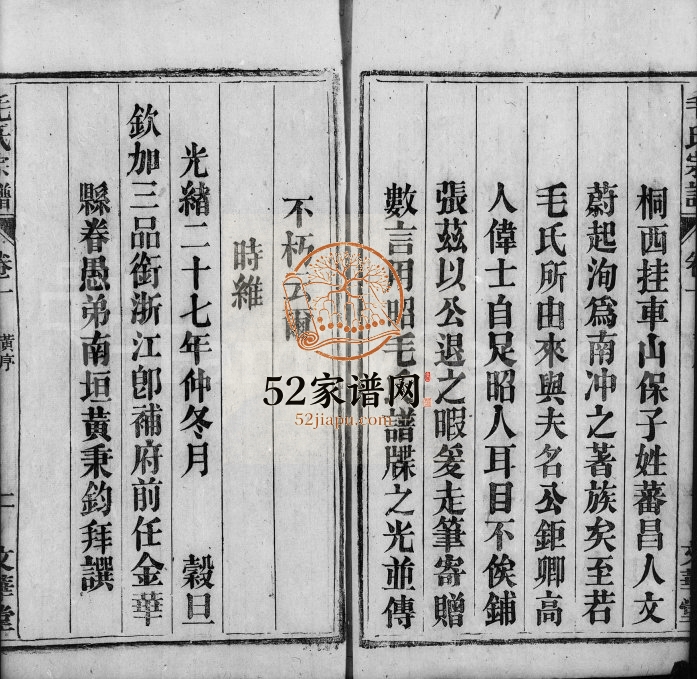 桐西挂車山保子姓蕃昌人文
蔚起洵爲南冲之著族矣至若
毛氏所由來與夫名公鉅卿高
人偉士自足昭人耳目不俟鋪
張茲以公退之暇爰走筆寄贈
數言用昭毛氏譜牒之光並傳
不朽云爾
時維
光緒二十七年仲冬月 穀旦
欽加三品銜浙江卽補府前任金華
縣眷愚弟南垣黃秉鈞拜譔
毛氏宗譜
卷二
黃序
二
文華堂
毛氏宗譜
文華堂
52家谱网
52jiapu.com